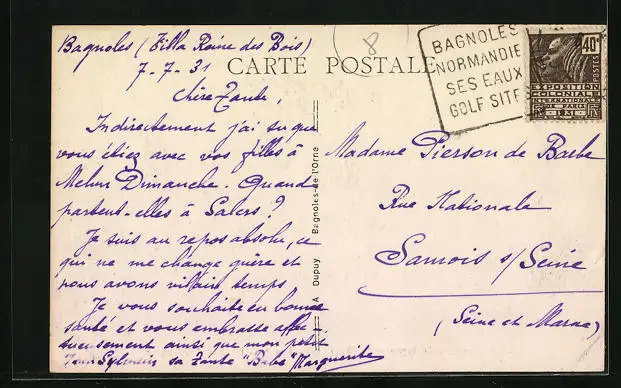 Bagnoles (Villa Reine des Bois)
7-7-31
8
CARTE POSTALE
BAGNOLES
NORMANDIE
SES EAUX
GOLF SITE
40c
POSTES
EXPOSITION
COLONIALE
INTERNATIONALE
DE PARIS
1931
Chère Tante,
Indirectement j'ai su que
vous étiez avec vos filles à
Melun Dimanche. Quand
partent-elles à Salers ?
Je suis au repos absolu, ce
qui ne me change guère et
nous avons vilain temps
Je vous souhaite en bonne
santé et vous embrasse affec-
tueusement ainsi que mon petit
Jean Sylvain sa Tante "Bébé" Marguerite
A Dupuy Bagnoles-de l'Orne
Madame Pierson de Barbe
Rue Nationale
Samois s/ Seine
(Seine et Marne)